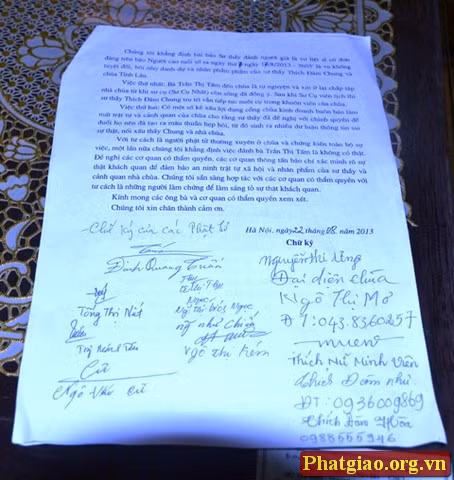 Chúng tôi khẳng định lời báo Sư thầy đánh người già là vu lời đã có đơn
đăng trên báo Người cao tuổi số ra ngày thứ ngày /9/2013 - là vu khống
tuyệt đối, bôi nhọ danh dự và nhân phẩm của sư thầy Thích Đàm Chung và
chùa Tĩnh Lâu.
Việc thứ nhất: Bà Trần Thị Tâm đến chùa là tự nguyện và xin ở lại chấp tập
nhà chùa từ khi sư cụ (Sư Cụ Nhật) còn sống đã đồng ý. Sau khi Sư Cụ viên tịch thì
sư thầy Thích Đàm Chung trụ trì vẫn tiếp tục nuôi cụ trong khuôn viên của chùa.
Việc thứ hai: Có một số kẻ xấu lợi dụng cổng chùa kinh doanh buôn bán làm
mất trật tự và cảnh quan của chùa cho rằng sư thầy đã đề nghị với chính quyền để
đuổi họ nên đã tạo ra mâu thuẫn hiềm hợi, từ đó sinh ra nhiều dư luận thông tin sai
sự thật, nói xấu thầy Chung và nhà chùa.
Với tư cách là người phật tử thường xuyên ở chùa và chứng kiến toàn bộ sự
việc, một lần nữa chúng tôi khẳng định việc đánh bà Trần Thị Tâm là không có thật.
Đề nghị các cơ quan có thẩm quyền, các cơ quan thông tấn báo chí xác minh rõ sự
thật khách quan để đảm bảo an ninh trật tự xã hội và nhân phẩm của sư thầy và
cảnh quan nhà chùa. Chúng tôi sẵn sàng hợp tác với các cơ quan có thẩm quyền với
tư cách là những người làm chứng để làm sáng tỏ sự thật khách quan.
Kính mong các ông bà và cơ quan có thẩm quyền xem xét.
Chúng tôi xin chân thành cảm ơn.
Hà Nội, ngày 22 tháng 08 năm 2013
- Chữ ký của các Phật tử
Chữ ký
Nguyễn Thị Ứng
Đinh Quang Tuấn
Đại diện chùa
Ngô Thị Mơ
Tống Thị Nết
Ngô Thị Bích Ngọc
ĐT: 043.8360257
Ngô Thị Kém
Thích Nữ Minh Viên
Cừ
Thích Đàm như
Ngô Văn Cừ
ĐT: 0936009869
Thích Đàm Hòa
0988555946
Phatgiao.org.vn